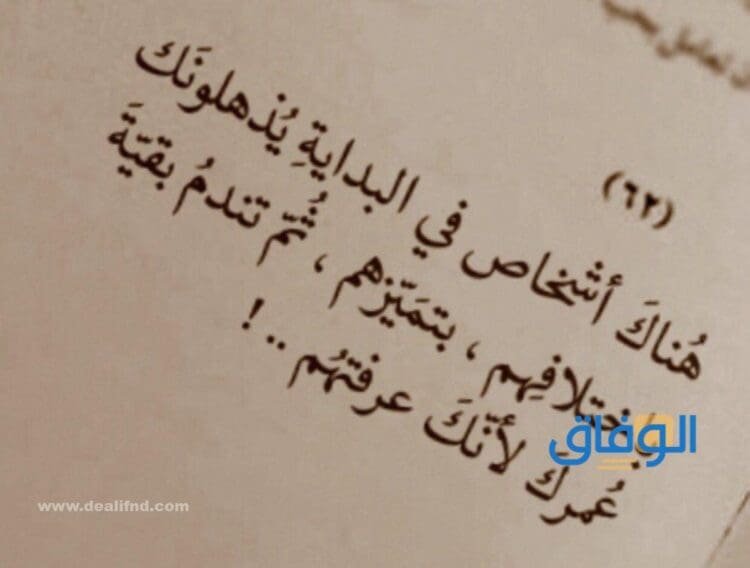 (٦٢)
هُناكَ أشخاص في البدايةِ يُذهلونَك
باختلافِهم ، بتمَيّزهم ، ثُمّ تندمُ بقيّةَ
عُمركَ لأنّكَ عرفتهُم ..!
الوفاق
www.dealifnd.com